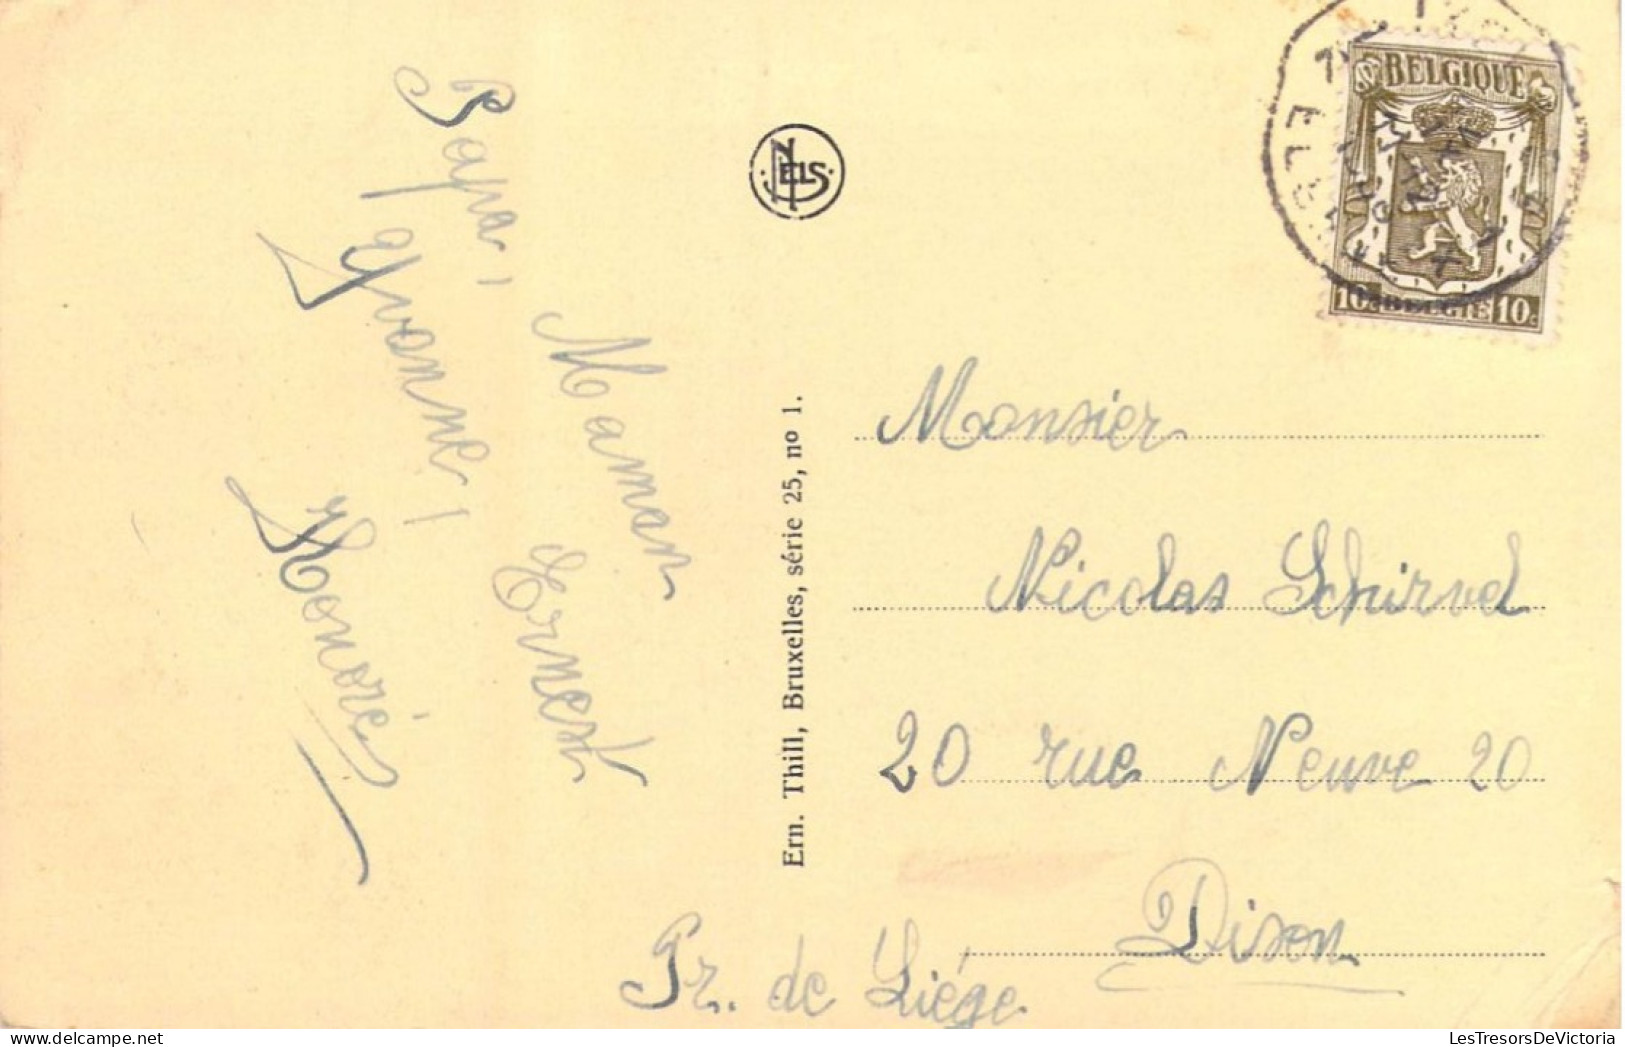 Papa,
Maman
Yvonne,
Ernest
Honoré
NELS
Ern. Thill, Bruxelles, série 25, no 1.
BELGIQUE
10c BELGIË 10c
Monsier
Nicolas Schirvel
20 rue Neuve 20
Dison
Pr. de Liége
LesTresorsDeVictoria